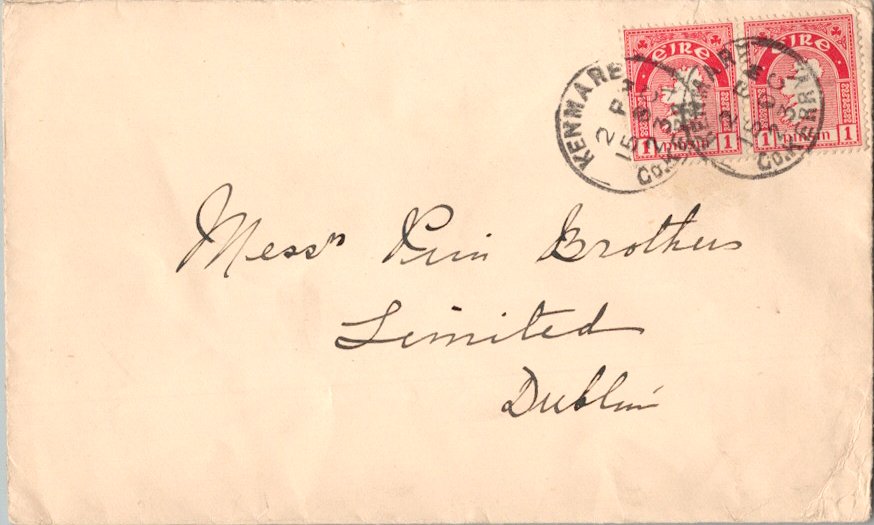 ÉIRE ÉIRE
1 pinġin 1 1 pinġin 1
KENMARE
2 PM
15 OC
Co. KERRY
KENMARE
2 PM
15 OC
Co. KERRY
Messrs Pim Brothers
Limited
Dublin